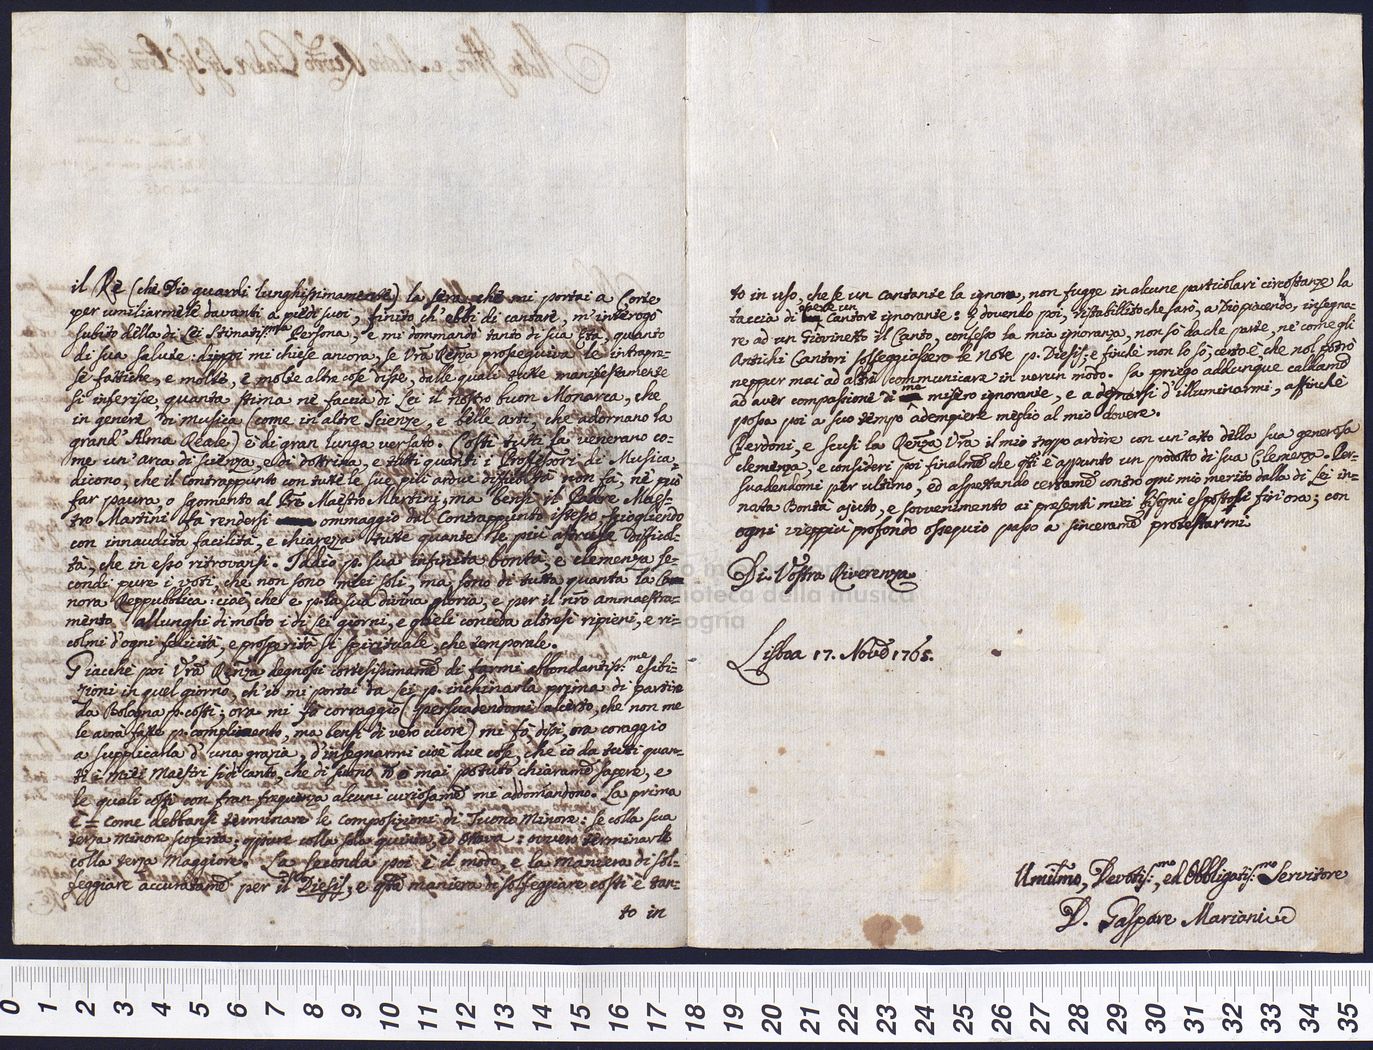 il Rè (che Dio guardi lunghissimamente) la sera che mi portai a Corte
per umiliarmele davanti a piedi suoi, finito ch'ebbi di cantare, m'interogò
subito della di Lei Stimatis:ma Persona, e mi dommandò tanto di sua Età, quanto
di sua salute: dippoi mi chiese ancora, se Vrã Renza proseguiva le intrapre-
se fattiche, e molte, e molte altre cose disse, dalle quali tutte manifestamente
si inferisce quanta stima nè faccia di Lei il nostro buon Monarca, che
in genere di Musica (come in altre Scienze, e belle arti, che adornano la
grand'Alma Reale) è di gran lunga versato. Costì tutti la venerano co-
me un'arca di scienza, e di dottrina, e tutti quanti i Professori di Musica
dicono, che il Contrappunto con tutte le sue più ardue difficoltà non fà, nè può
far paura, o sgomento al Pre Maestro Martini, ma bensì il Padre Maes-
tro Martini fà rendersi ommaggio dal Contrappunto istesso, sciogliendo
con innaudita facilità, e chiarezza tutte quante le più astruse difficol-
tà, che in esso ritrovansi. Iddio p. sua infinita bontà, e clemenza se-
condi pure i voti, che non sono miei soli, ma sono di tutta quanta la Ca-
nora Reppubblica: cioè, che e p. la sua divina gloria, e per il nrõ ammaestra-
mento allunghi di molto i di Lei giorni, e quelli conceda altresì ripieni, e ri-
colmi d'ogni felicità, e prosperità sì spirituale, che temporale.
Giacchè poi Vrã Renza degnossi cortesissimame di farmi abbondantiss:me esibi-
zioni in quel giorno, ch'io mi portai da Lei p. inchinarla prima di partire
da Bologna p. costì; ora mi fò corraggio (persuadendomi al certo, che non me
le avrà fatte p. complimento, ma bensì di vero cuore) mi fò dissi, ora coraggio
a supplicarla d'una grazia, d'insegnarmi cioè due cose, che io da tutti quan-
ti i miei Maestri sì di canto, che di suono nõ ò mai potuto chiarame sapere, e
le quali costì con gran frequenza alcuni curiosame mi addomandono. La prima
è = come debbansi terminare le composizioni di Tuono Minore: se colla sua
terza Minore scoperta; oppure colla sola quinta, ed Ottava: ovvero terminarle
colla terza Maggiore. La seconda poi è il modo, e la maniera di sol-
feggiare accuratame per il Diesis, e qta maniera di solfeggiare costì è tan-
to in
to in uso, che se un cantante la ignora, non fugge in alcune particolari circostanze la
taccia di essere un Cantore ignorante: E dovendo poi, ristabillito che sarò, a Dio piacendo, insegna-
re ad un Giovinetto il Canto, confesso la mia ignoranza, non sò da che parte, nè come gli
Antichi Cantori solfeggiassero le Note p. Diesis; e finchè non lo sò, certo è che nol potrò
neppur mai ad altri communicare in verun modo. La priego addunque caldame
ad aver compassione di me misero ignorante, e a degnarsi d'illuminarmi, affinchè
possa poi a suo tempo adempiere meglio al mio dovere.
Perdoni, e scusi la Renza Vrã il mio troppo ardire con un'atto della sua generosa
clemenza, e consideri poi finalme che qti è appunto un prodotto di sua Clemenza. Per-
suadendomi per ultimo, ed aspettando certame contro ogni mio merito dalla di Lei in-
nata Bontà ajuto, e sovvenimento ai presenti miei Bisogni espostisi fin'ora; con
ogni vieppiù profondo ossequio passo a sincerame protestarmi
Di Vostra Riverenza
Lisboa 17. Novẽ 1765.
Umilmo, Devotis:mo, ed Obbligatis:mo Servitore
D. Gaspare Mariani
0 1 2 3 4 5 6 7 8 9 10 11 12 13 14 15 16 17 18 19 20 21 22 23 24 25 26 27 28 29 30 31 32 33 34 35